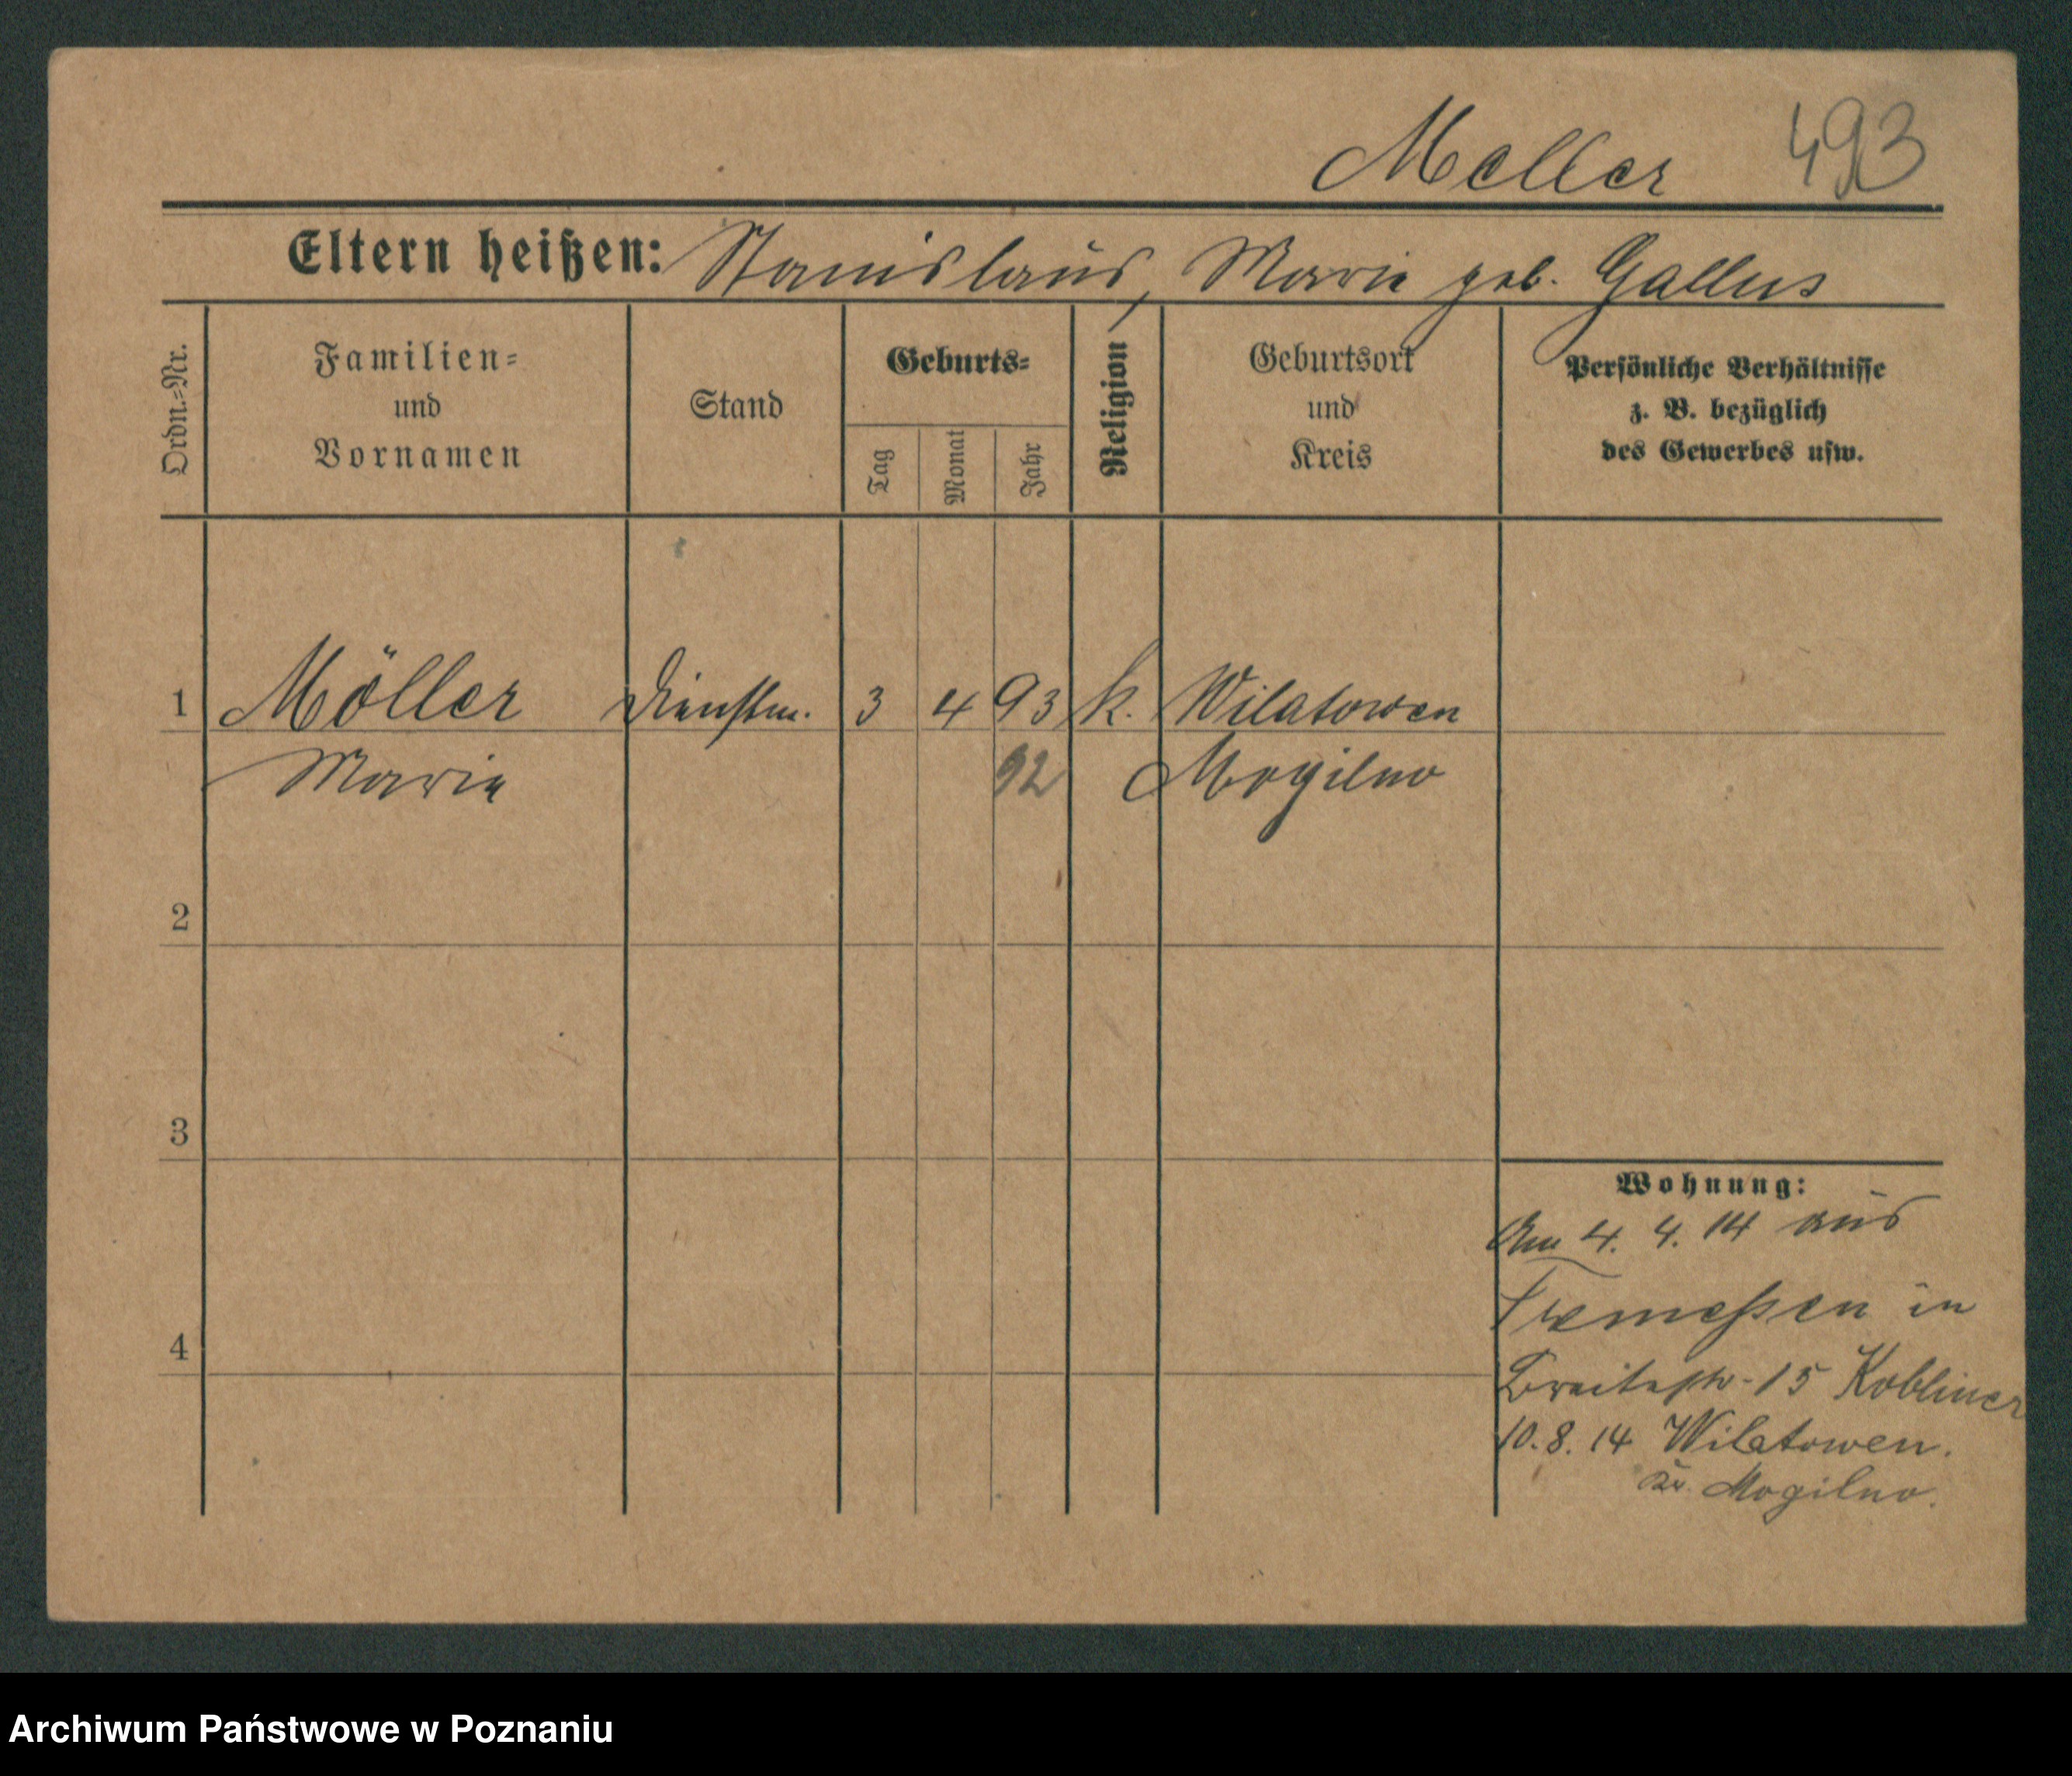 Meller 493
Eltern heißen: Stanislaus, Marie geb. Gallus
Ordn.-Nr.
Familien-
und
Vornamen
Stand
Geburts-
Tag
Monat
Jahr
Religion
Geburtsort
und
Kreis
Persönliche Verhältnisse
z. B. bezüglich
des Gewerbes usw.
1 Möller Dienstm. 3 4 93 k. Wilatowen
Marie 92 Mogilno
2
3
4
Wohnung:
Am 4. 4. 14 aus
Tremessen in
Breitestr. 15 Kobliner
10. 8. 14 Wilatowen.
Kr. Mogilno.
Archiwum Państwowe w Poznaniu